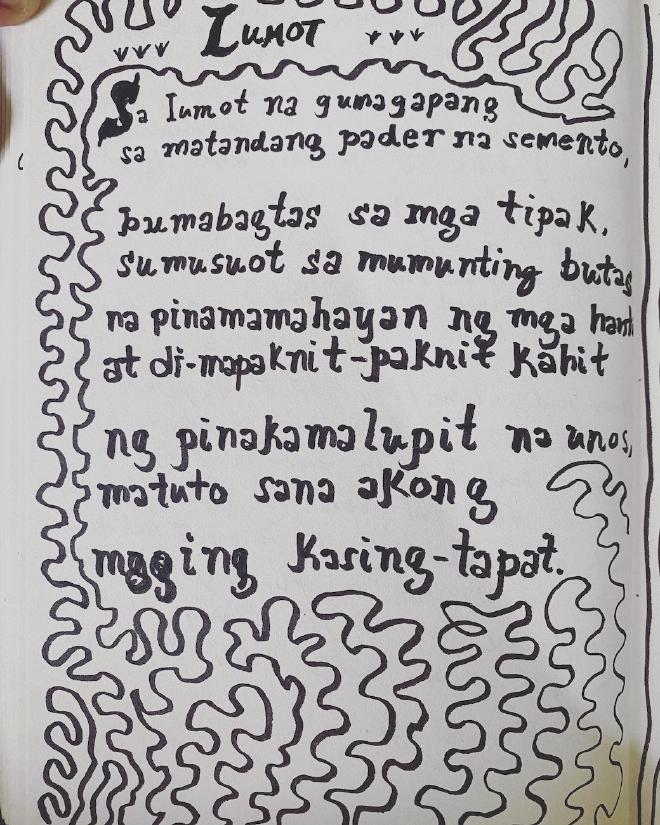 Lumot
Sa lumot na gumagapang
sa matandang pader na semento,
bumabagtas sa mga tipak,
sumusuot sa mumunting butas
na pinamamahayan ng mga
at di-mapaknit-paknit kahit
ng pinakamalupit na unos,
matuto sana akong
maging kasing-tapat.